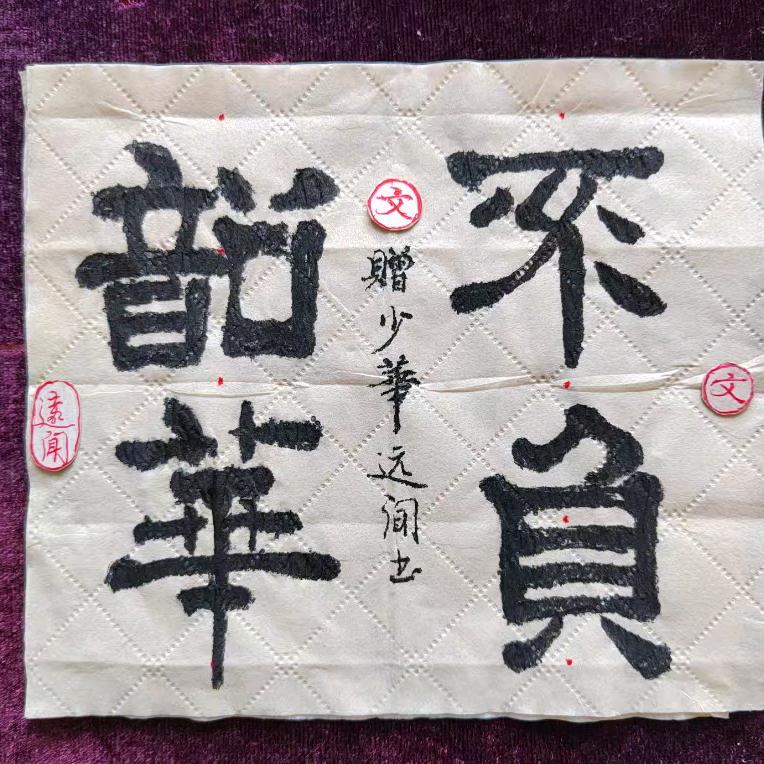 文
不負
文
贈少華远闻书
韶華
逺闻